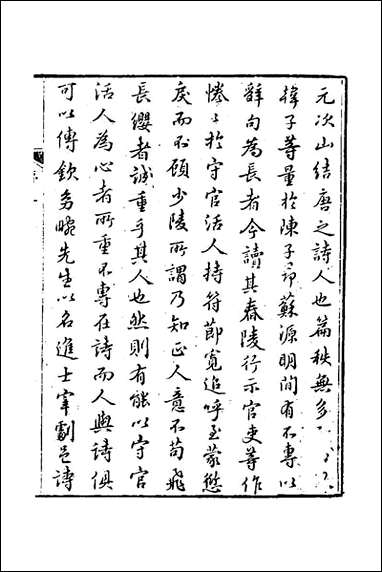 元次山結唐之詩人也篇秩無多
韓子等量於陳子昂蘇源明間有不專以
辭句為長者今讀其舂陵行示官吏等作
惓惓於守官活人持符節寬追呼至蒙愆
戾而不顧少陵所謂乃知正人意不苟飛
長纓者誠重乎其人也然則有能以守官
活人為心者所重不專在詩而人與詩俱
可以傳欽多畹先生以名進士宰劇邑詩